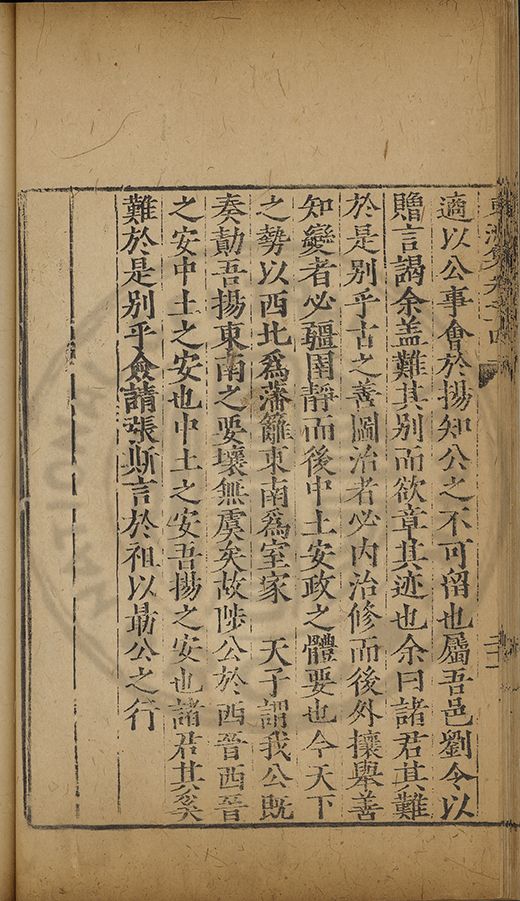 適以公事會於揚知公之不可留也屬吾邑劉令以
贈言謁余盖難其别而欲章其迹也余曰諸君其難
於是别乎古之善圖治者必内治修而後外攘舉善
知變者必疆圉靜而後中土安政之體要也今天下
之勢以西北爲藩籬東南爲室家　天子謂我公既
奏勣吾揚東南之要壤無虞矣故陟公於西晉西晉
之安中土之安也中土之安吾揚之安也諸君其奚
難於是别乎僉請張斯言於祖以勗公之行